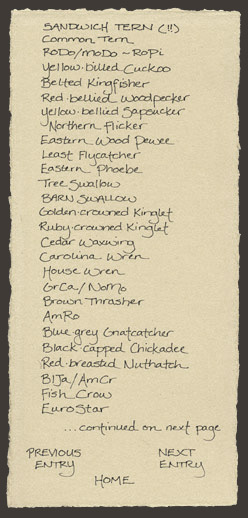 SANDWICH TERN (!!)
Common Tern
RoDo/MoDo - RoPi
Yellow-billed Cuckoo
Belted Kingfisher
Red-bellied Woodpecker
Yellow-bellied Sapsucker
Northern Flicker
Eastern Wood Pewee
Least Flycatcher
Eastern Phoebe
Tree Swallow
BARN Swallow
Golden-crowned Kinglet
Ruby-crowned Kinglet
Cedar Waxwing
Carolina Wren
House Wren
GrCa/NoMo
Brown Thrasher
AmRo
Blue-grey Gnatcatcher
Black-capped Chickadee
Red-breasted Nuthatch
BlJa/AmCr
Fish Crow
EuroStar
...continued on next page
PREVIOUS ENTRY
NEXT ENTRY
HOME